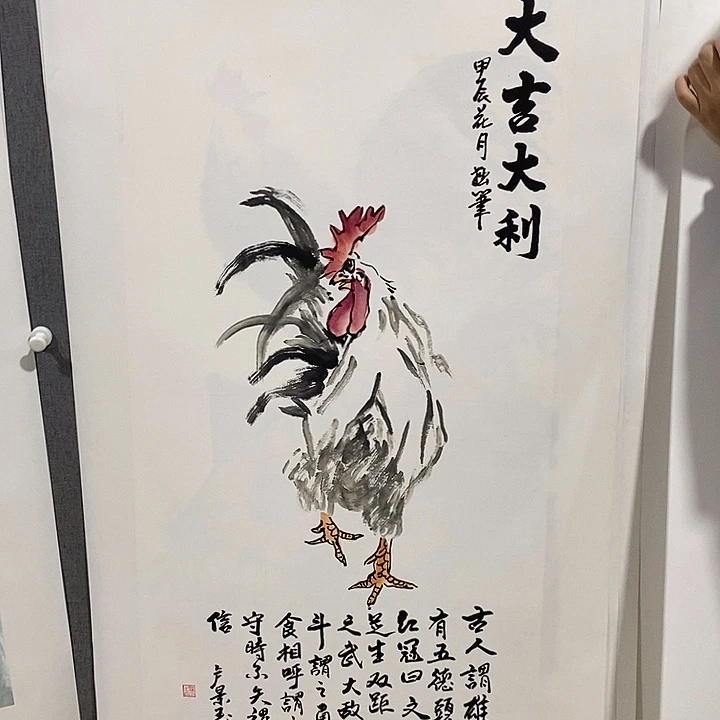 大吉大利
甲辰花月 筆
古人謂雄
有五德頭
紅冠曰文
足生双距
之武大敵
斗謂之勇
食相呼謂
守時不失謂
信